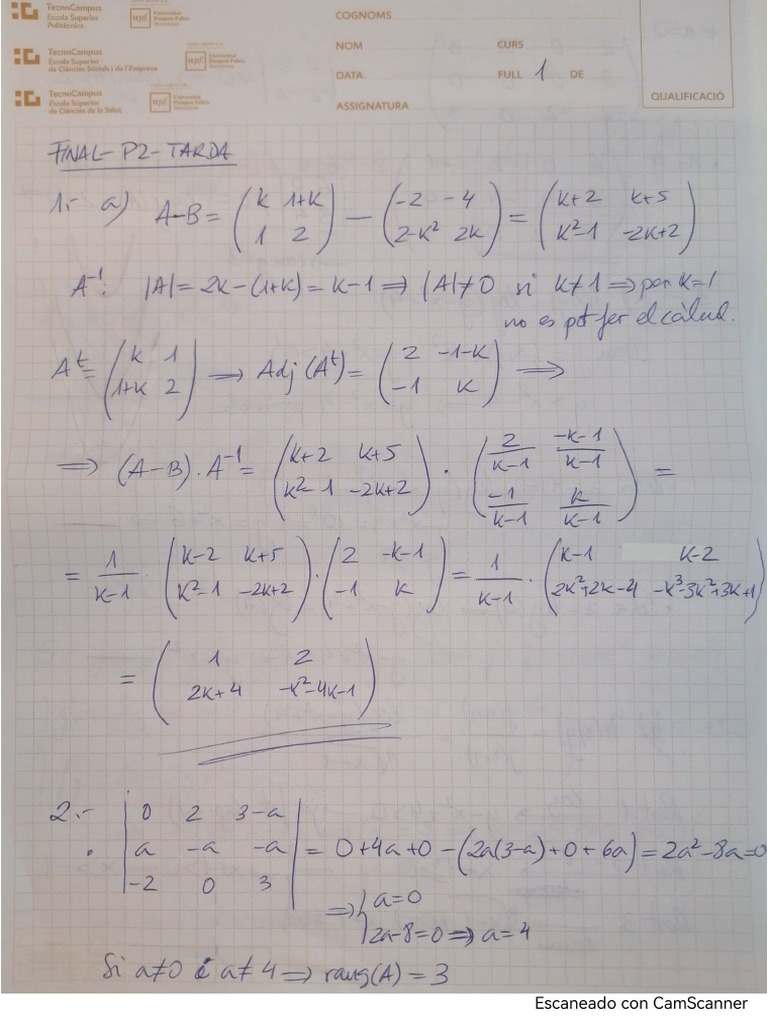 TecnoCampus
Escola Superior
Politècnica
upf. Universitat
Pompeu Fabra
Barcelona
TecnoCampus
Escola Superior
de Ciències Socials i de l'Empresa
upf. Universitat
Pompeu Fabra
Barcelona
TecnoCampus
Escola Superior
de Ciències de la Salut
upf. Universitat
Pompeu Fabra
Barcelona
COGNOMS
NOM CURS
DATA FULL 1 DE
ASSIGNATURA
QUALIFICACIÓ
FINAL-P2-TARDA
1.- a) A-B = (k 1+k; 1 2) - (-2 -4; 2-k² 2k) = (k+2 k+5; k²-1 -2k+2)
A⁻¹: |A| = 2k-(1+k) = k-1 ⇒ |A|≠0 si k≠1 ⇒ per k=1
no es pot fer el càlcul.
Aᵗ = (k 1; 1+k 2) → Adj(Aᵗ) = (2 -1-k; -1 k) ⇒
⇒ (A-B)·A⁻¹ = (k+2 k+5; k²-1 -2k+2) · (2/(k-1) (-k-1)/(k-1); -1/(k-1) k/(k-1)) =
= 1/(k-1) · (k-2 k+5; k²-1 -2k+2) · (2 -k-1; -1 k) = 1/(k-1) · (k-1 k-2; 2k²+2k-4 -k³-3k²+3k+1)
= (1 2; 2k+4 -k²-4k-1)
2.- |0 2 3-a; a -a -a; -2 0 3| = 0+4a+0-(2a(3-a)+0+6a) = 2a²-8a=0
⇒ { a=0
2a-8=0 ⇒ a=4
Si a≠0 i a≠4 ⇒ rang(A) = 3
Escaneado con CamScanner